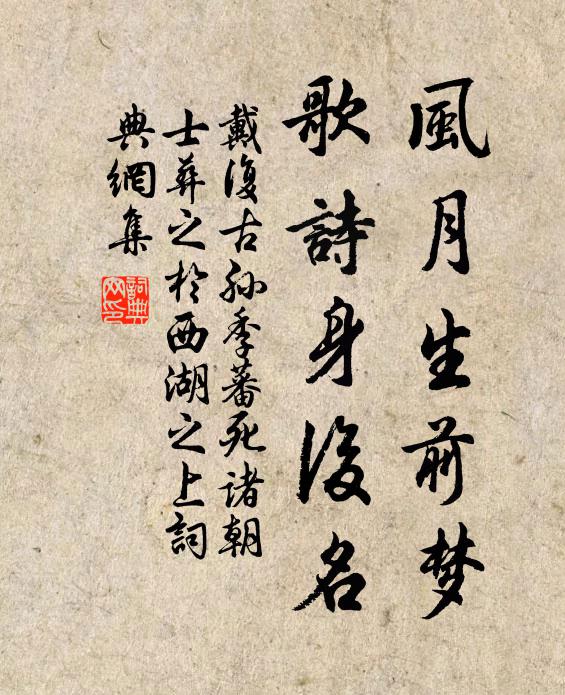 風月生前梦
歌詩身後名
戴復古孙季蕃死诸朝
士葬之於西湖之上詞
典網集
詞典
网印